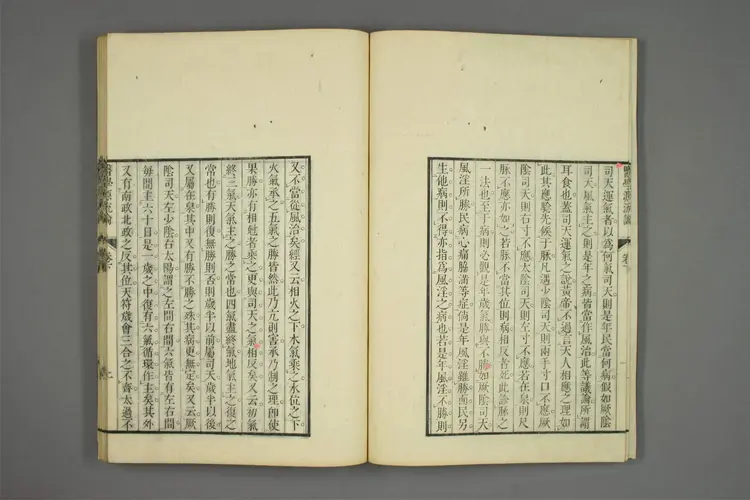 醫學源流論
卷下
司天運氣者以爲何氣司天則是年民當何病假如厥陰
司天風氣主之則是年之病皆當作風治此等議論所謂
耳食也蓋司天運氣之說黃帝不過言天人相應之理如
此其應驗先候于脉凡遇少陰司天則兩手寸口不應厥
陰司天則右寸不應太陰司天則左寸不應若在泉則尺
脉不應亦如之若脉不當其位則病相反者死此診脉之
一法也至于病則必觀是年歲氣勝與不勝如厥陰司天
風淫所勝民病心痛脇滿等症倘是年風淫雖勝而民另
生他病則不得亦指爲風淫之病也若是年風淫不勝則
又不當從風治矣經又云相火之下水氣乘之水位之下
火氣承之五氣之勝皆然此乃亢則害承乃制之理即使
果勝亦有相尅者乘之更與司天之氣相反矣又云初氣
終三氣天氣主之勝之常也四氣盡終氣地氣主之復之
常也有勝則復無勝則否則歲半以前屬司天歲半以後
又屬在泉其中又有勝不勝之殊其病更無定矣又云厥
陰司天左少陰右太陽謂之左間右間六氣皆有左右間
每間主六十日是一歲之中復有六氣循環作主矣其外
又有南政北政之反其位天符歲會三合之不齊太過不
醫學源流論
卷下